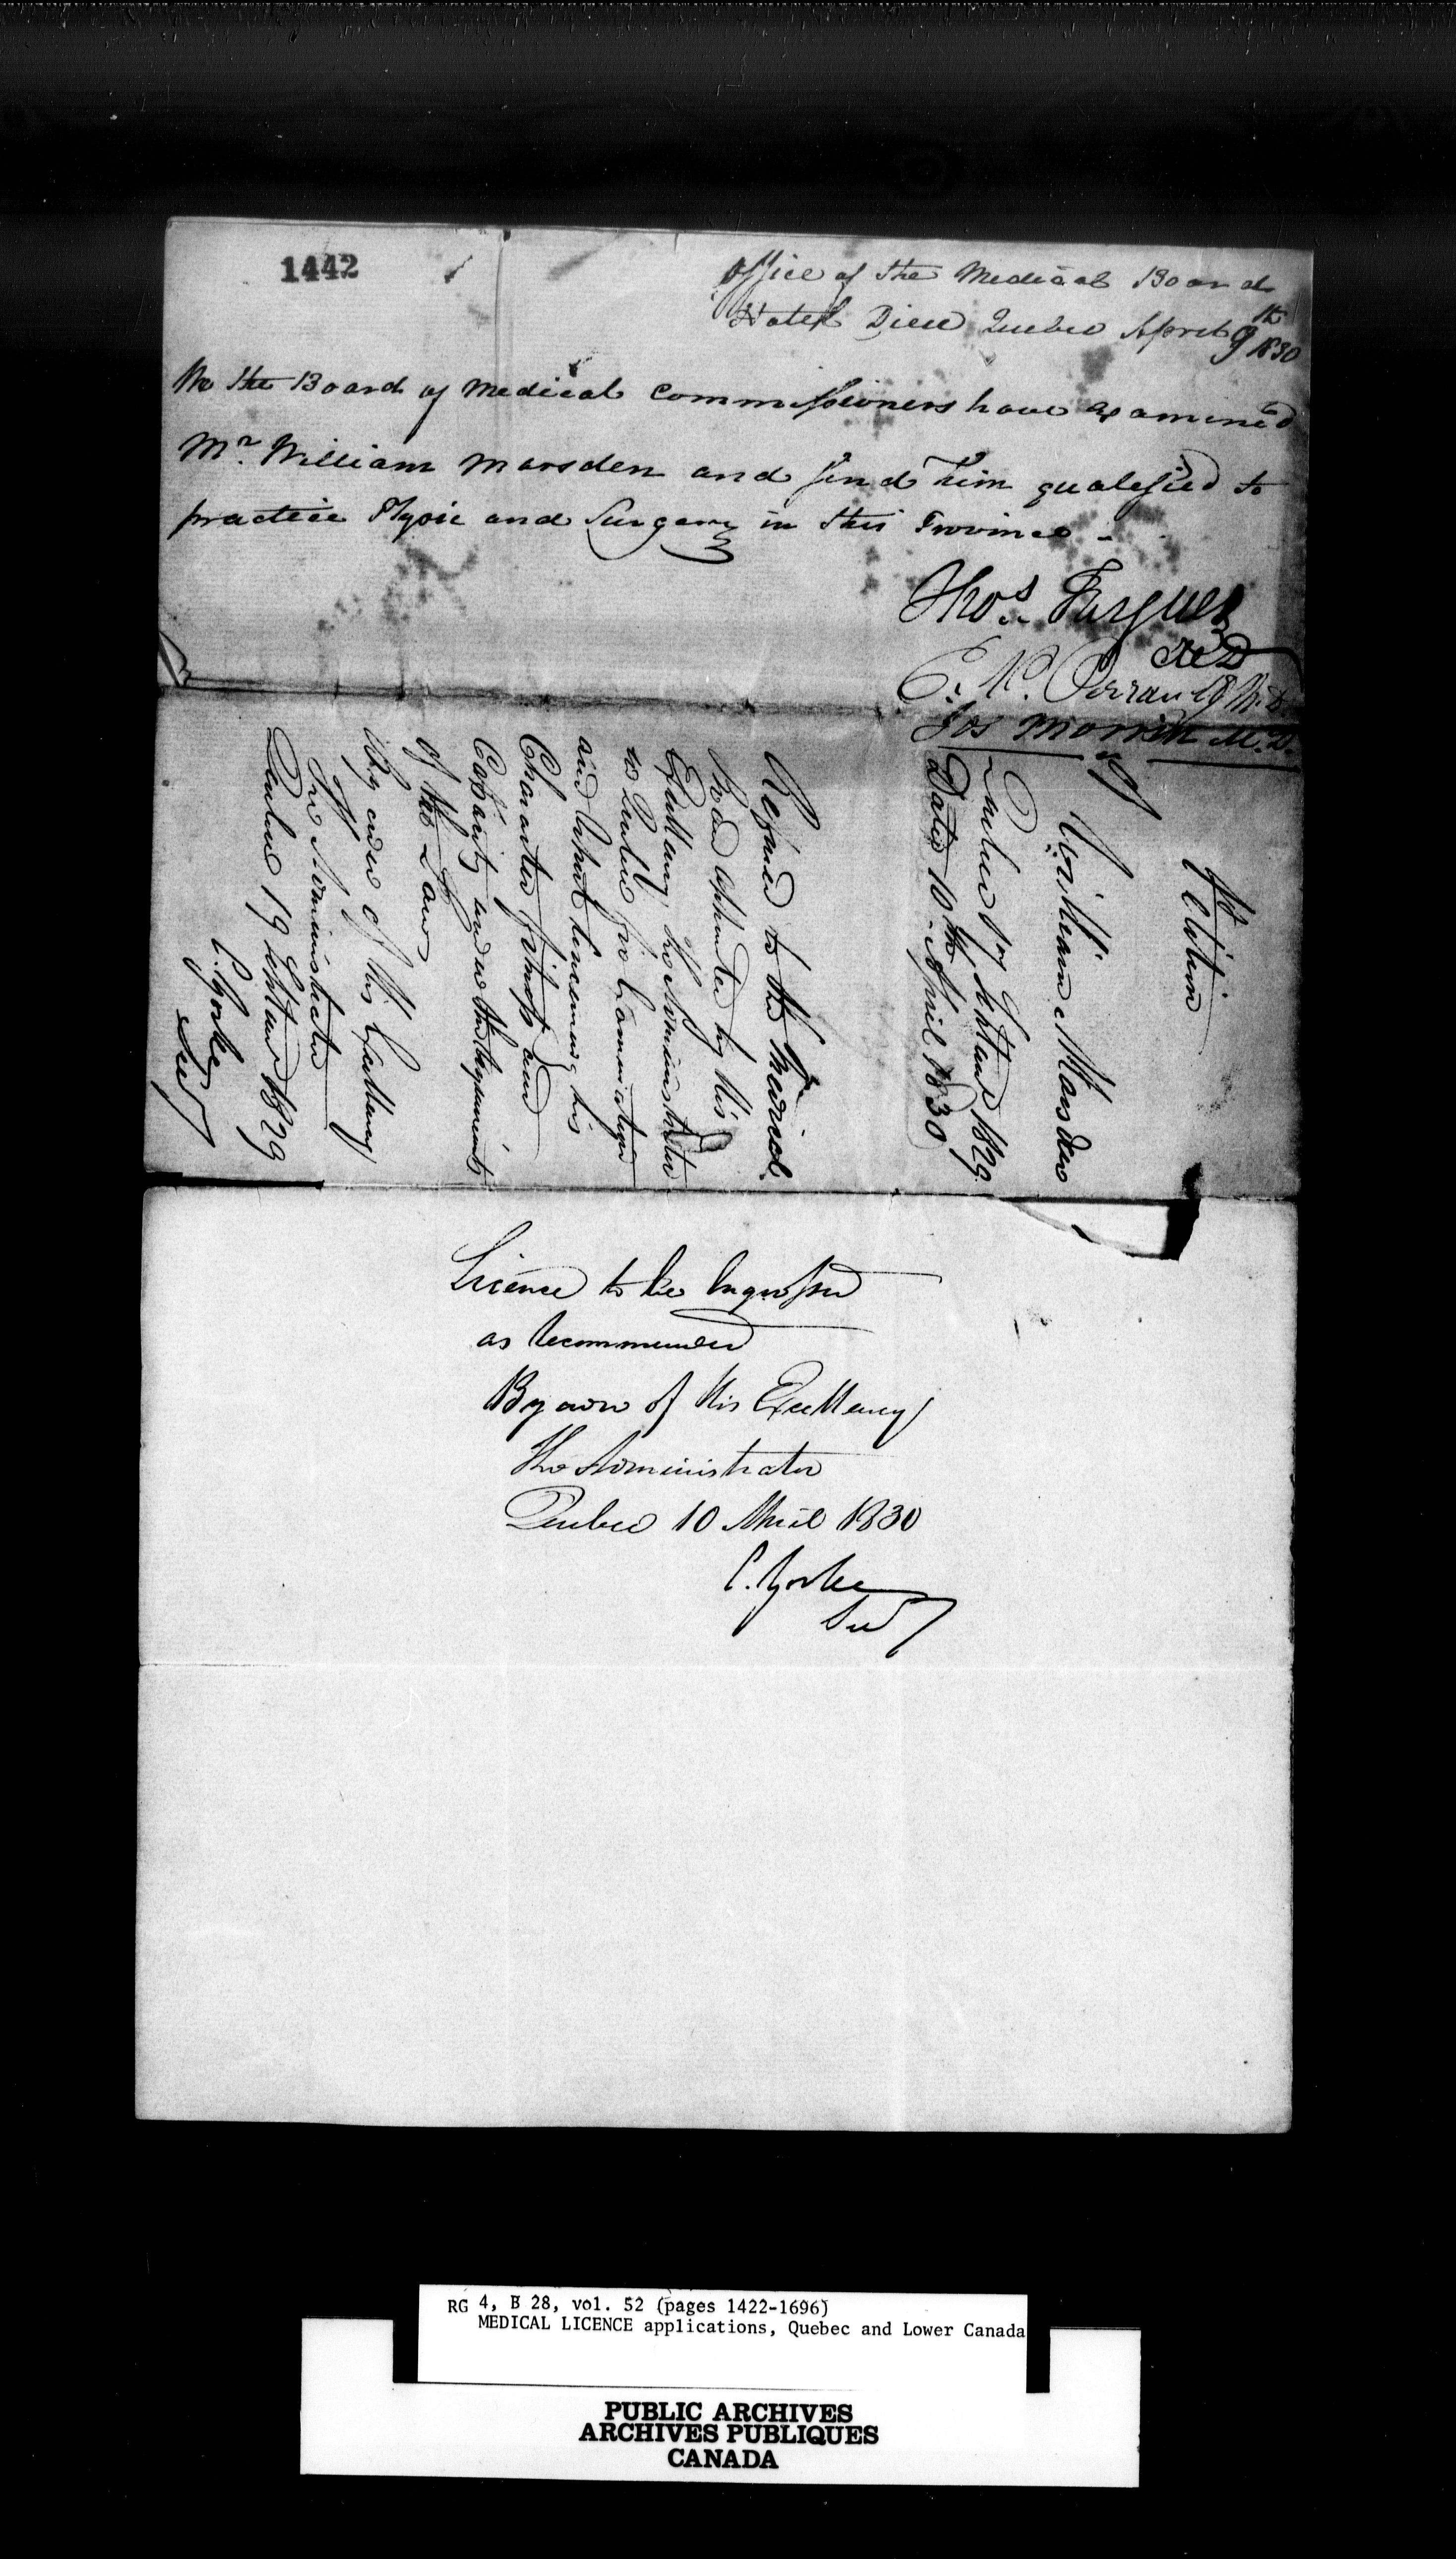 1442
Office of the Medical Board
Hotel Dieu Quebec April 9th 1830
We the Board of Medical Commissioners have examined
Mr. William Marsden and find him qualified to
practice Physic and Surgery in this Province -
Thos. Fargues
M.D
C. N. Perrault M.D.
Jos Morrin M.D.
Petition
of
William Marsden
Quebec Septemr 1829
Date 10th April 1830
Referred to the Medical
Board appointed by His
Excellency the Administrator
to Quebec for Examination
and Report touching his
Character fitness and
Capacity under the requirements
of the Law
By order of His Excellency
The Administrator
Quebec 19 Septemr 1829
C. Yorke
Secy
Licence to be Engrossed
as recommended
By order of His Excellency
The Administrator
Quebec 10 April 1830
C. Yorke
Secy
RG 4, B 28, vol. 52 (pages 1422-1696)
MEDICAL LICENCE applications, Quebec and Lower Canada
PUBLIC ARCHIVES
ARCHIVES PUBLIQUES
CANADA